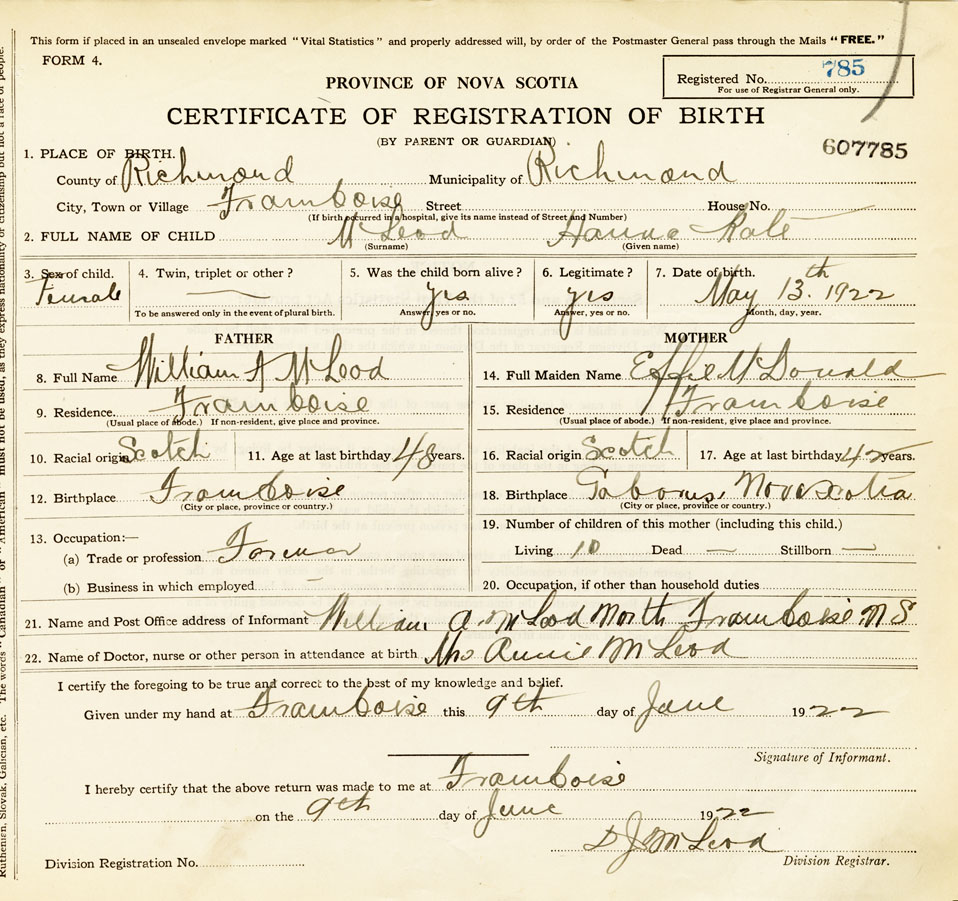 This form if placed in an unsealed envelope marked "Vital Statistics" and properly addressed will, by order of the Postmaster General pass through the Mails "FREE."
FORM 4.
Registered No. 785
For use of Registrar General only.
PROVINCE OF NOVA SCOTIA
CERTIFICATE OF REGISTRATION OF BIRTH
(BY PARENT OR GUARDIAN)
607785
1. PLACE OF BIRTH.
County of Richmond Municipality of Richmond
City, Town or Village Framboise Street House No.
(If birth occurred in a hospital, give its name instead of Street and Number)
2. FULL NAME OF CHILD McLeod Hanna Kate
(Surname) (Given name)
3. Sex of child. 4. Twin, triplet or other? 5. Was the child born alive? 6. Legitimate? 7. Date of birth.
Female — yes yes May 13th 1922
To be answered only in the event of plural birth. Answer, yes or no. Answer, yes or no. Month, day, year.
FATHER MOTHER
8. Full Name William A McLeod 14. Full Maiden Name Effie McDonald
9. Residence Framboise 15. Residence Framboise
(Usual place of abode.) If non-resident, give place and province. (Usual place of abode.) If non-resident, give place and province.
10. Racial origin Scotch 11. Age at last birthday 48 years. 16. Racial origin Scotch 17. Age at last birthday 42 years.
12. Birthplace Framboise 18. Birthplace Gabarus, Nova Scotia
(City or place, province or country.) (City or place, province or country.)
13. Occupation:— 19. Number of children of this mother (including this child.)
(a) Trade or profession Farmer Living 10 Dead — Stillborn —
(b) Business in which employed — 20. Occupation, if other than household duties
21. Name and Post Office address of Informant William A. McLeod North Framboise N S
22. Name of Doctor, nurse or other person in attendance at birth Mrs Annie McLeod
I certify the foregoing to be true and correct to the best of my knowledge and belief.
Given under my hand at Framboise this 9th day of June 1922
Signature of Informant.
I hereby certify that the above return was made to me at Framboise
on the 9th day of June 1922
D J McLeod
Division Registration No. Division Registrar.
Ruthenian, Slovak, Galician, etc. The words "Canadian" or "American" must not be used, as they express nationality or citizenship but not a race of people.